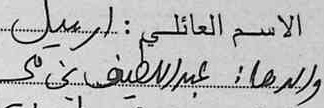 الاسم العائلي : ارسيل
والدها : عبد اللطيف بن